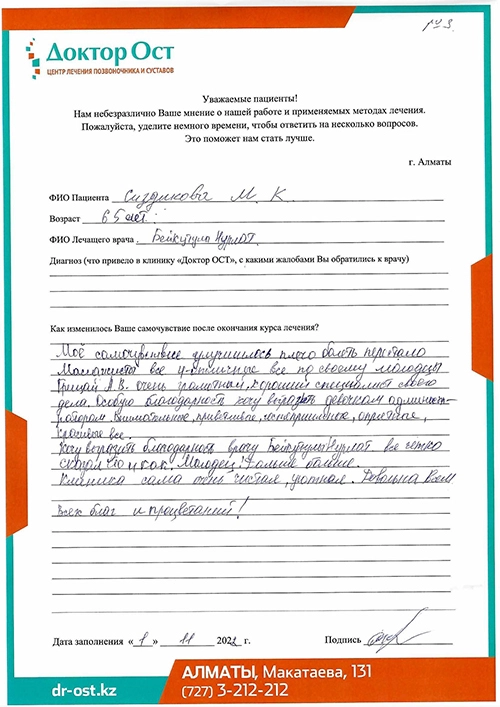 Доктор Ост
ЦЕНТР ЛЕЧЕНИЯ ПОЗВОНОЧНИКА И СУСТАВОВ
Уважаемые пациенты!
Нам небезразлично Ваше мнение о нашей работе и применяемых методах лечения.
Пожалуйста, уделите немного времени, чтобы ответить на несколько вопросов.
Это поможет нам стать лучше.
г. Алматы
ФИО Пациента Сиздикова М. К.
Возраст 65 лет.
ФИО Лечащего врача . Бейкутулы Нурлат.
Диагноз (что привело в клинику «Доктор ОСТ», с какими жалобами Вы обратились к врачу)
Как изменилось Ваше самочувствие после окончания курса лечения?
Моё самочувствие улучшилось плечо болеть перестало
Массажисты все отличные все по своему молодцы
А.В. очень грамотный, хороший специалист своего
дела. Особую благодарность хочу выразить девочкам админист-
раторам. Внимательное, приветливое, опрятные,
красивые все.
Хочу выразить благодарность врачу Бейкутулы Нурлат все четко
сказал что и как. Молодец.
Клиника сама очень чистая, уютная. Довольна всем
Всех благ и процветания!
Дата заполнения « 1 » 11 2022 г. Подпись
АЛМАТЫ, Макатаева, 131
dr-ost.kz (727) 3-212-212